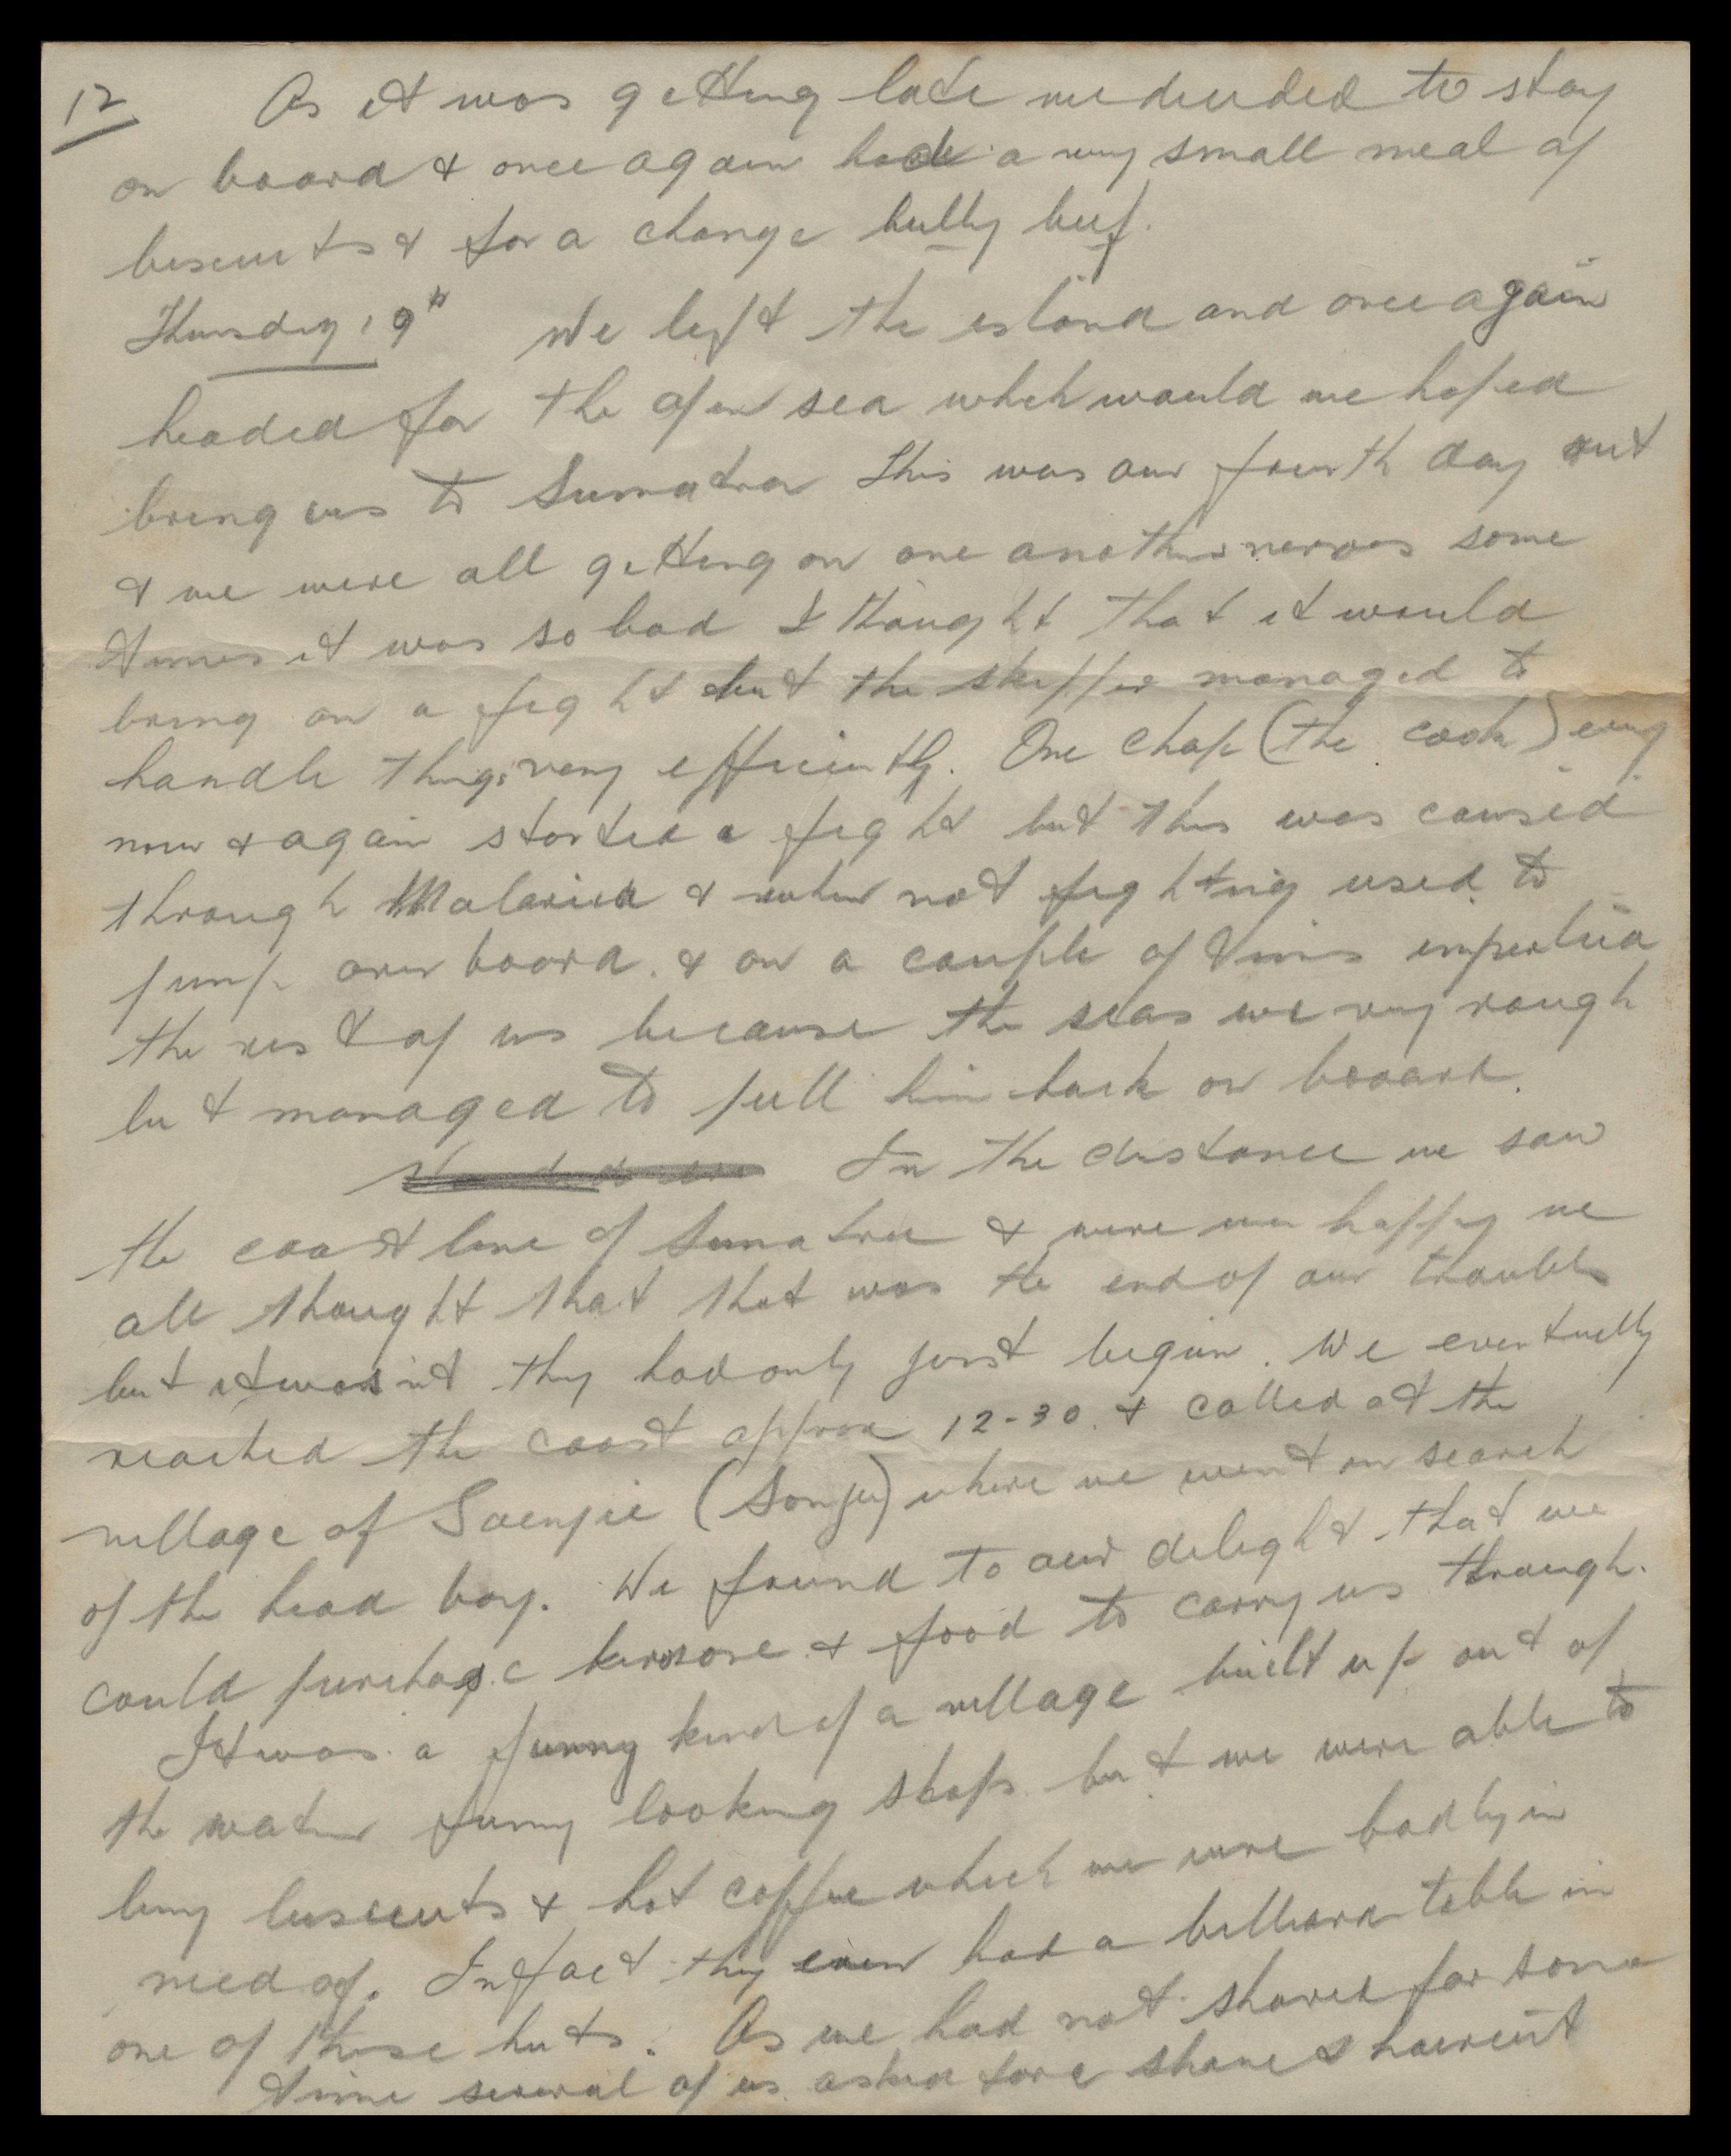 12 As it was getting late we decided to stay
on board & once again had a very small meal of
biscuits & for a change bully beef.
Thursday 19th We left the island and once again
headed for the open sea which would we hoped
bring us to Sumatra This was our fourth day out
& we were all getting on one anothers nerves some
times it was so bad I thought that it would
bring on a fight but the skipper managed to
handle things very efficiently. One chap (the cook) every
now & again started a fight but this was caused
through Malaria & when not fighting used to
jump over board. & on a couple of times
the rest of us because the seas we very rough
but managed to pull him back on board.
In the distance we saw
the coast line of Sumatra & were very happy we
all thought that that was the end of our troubles
but it wasn't they had only just begun. We eventually
reached the coast approx 12-30. & called at the
village of Soengie (Songei) where we went in search
of the head boy. We found to our delight that we
could purchase kerosone & food to carry us through.
It was a funny kind of a village built up out of
the water funny looking shops but we were able to
buy biscuits & hot coffee which we were badly in
need of. In fact they even had a billiard table in
one of these huts. As we had not shaved for some
time several of us asked for a shave & haircut